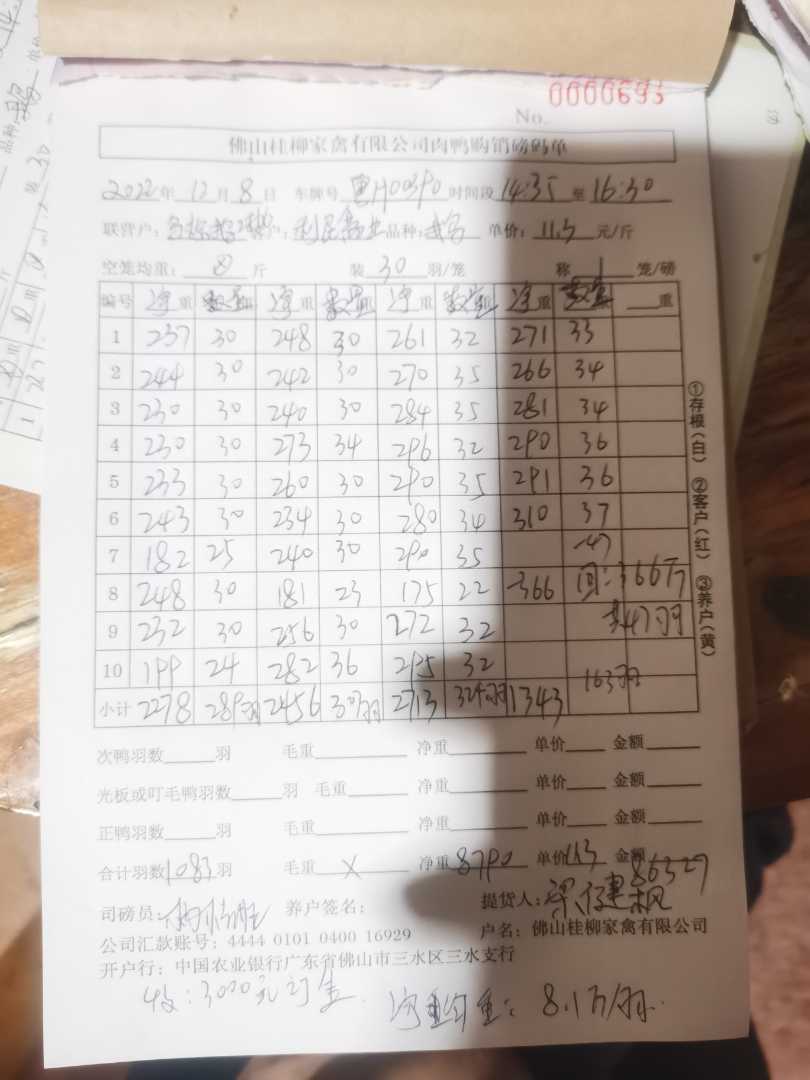 0000693
No.
佛山桂柳家禽有限公司肉鸭购销磅码单
2022年 12月 8日 车牌号 时间段 14:35 至 16:30
联营户: 品种: 单价: 11.3 元/斤
空笼均重: 8 斤 装 30 羽/笼 称 1 笼/磅
编号 净重 数量 净重 数量 净重 数量 净重 数量 重
1 237 30 248 30 261 32 271 33
2 244 30 242 30 270 35 266 34
3 230 30 240 30 284 35 281 34
4 230 30 273 34 296 32 290 36
5 233 30 260 30 290 35 291 36
6 243 30 234 30 280 34 310 37
7 182 25 240 30 290 35 -47
8 248 30 181 23 175 22 -366 回:366斤
9 232 30 256 30 272 32 共47羽
10 199 24 282 36 295 32 163羽
小计 2278 289羽 2456 307羽 2713 324羽 1343
①存根(白) ②客户(红) ③养户(黄)
次鸭羽数 羽 毛重 净重 单价 金额
光板或叮毛鸭羽数 羽 毛重 净重 单价 金额
正鸭羽数 羽 毛重 净重 单价 金额
合计羽数 1083 羽 毛重 X 净重 8790 单价 11.3 金额 86327
司磅员: 养户签名: 提货人:
公司汇款账号: 4444 0101 0400 16929 户名: 佛山桂柳家禽有限公司
开户行: 中国农业银行广东省佛山市三水区三水支行
收:3000元订金 净重均重: 8.1斤/羽.